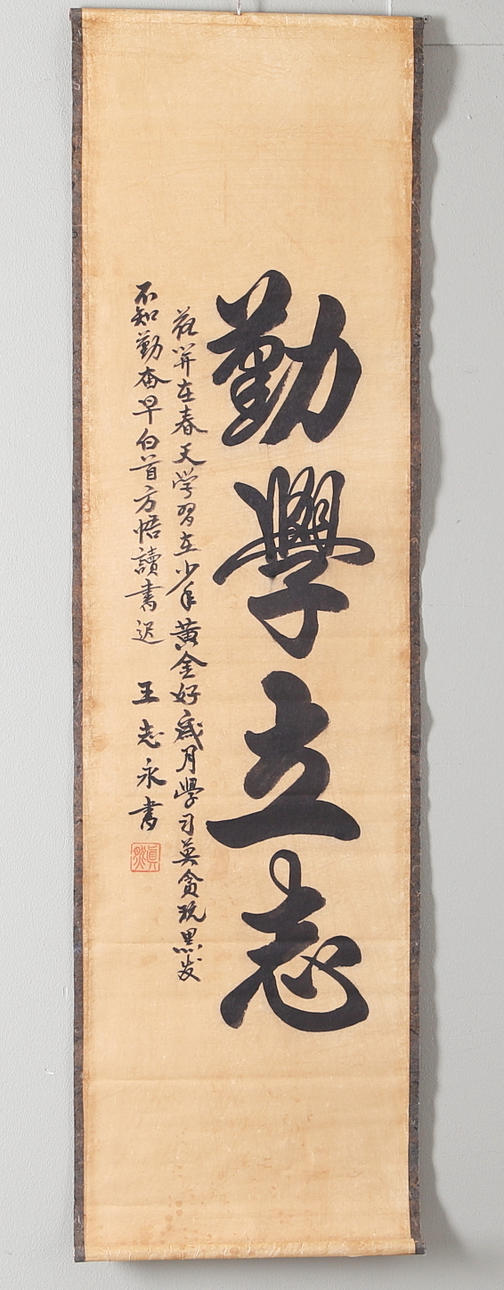 勤學立志
花开在春天学習在少年黄金好歲月學习莫贪玩黑发
不知勤奋早白首方悟讀書迟 王志永書